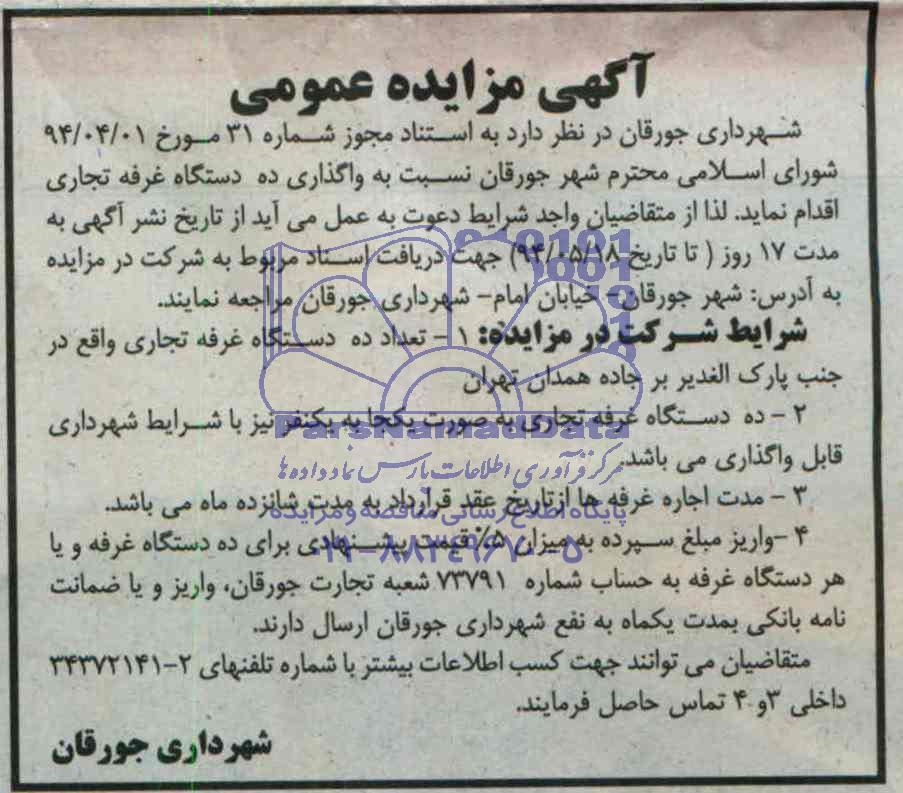 آگهی مزایده عمومی
شهرداری جورقان در نظر دارد به استناد مجوز شماره ۳۱ مورخ ۹۴/۰۴/۰۱
شورای اسلامی محترم شهر جورقان نسبت به واگذاری ده دستگاه غرفه تجاری
اقدام نماید. لذا از متقاضیان واجد شرایط دعوت به عمل می آید از تاریخ نشر آگهی به
مدت ۱۷ روز ( تا تاریخ ۹۴/۰۵/۱۸) جهت دریافت اسناد مربوط به شرکت در مزایده
به آدرس: شهر جورقان- خیابان امام- شهرداری جورقان مراجعه نمایند.
شرایط شرکت در مزایده: ۱ - تعداد ده دستگاه غرفه تجاری واقع در
جنب پارک الغدیر بر جاده همدان تهران
۲ - ده دستگاه غرفه تجاری به صورت یکجا به یکنفر نیز با شرایط شهرداری
قابل واگذاری می باشد.
۳ - مدت اجاره غرفه ها از تاریخ عقد قرارداد به مدت شانزده ماه می باشد.
۴ -واریز مبلغ سپرده به میزان ۵٪ قیمت پیشنهادی برای ده دستگاه غرفه و یا
هر دستگاه غرفه به حساب شماره ۷۳۷۹۱ شعبه تجارت جورقان، واریز و یا ضمانت
نامه بانکی بمدت یکماه به نفع شهرداری جورقان ارسال دارند.
متقاضیان می توانند جهت کسب اطلاعات بیشتر با شماره تلفنهای ۲-۳۴۳۷۲۱۴۱
داخلی ۳و ۴ تماس حاصل فرمایند.
شهرداری جورقان
ParsNamadData
مرکز فرآوری اطلاعات پارس نماد داده ها
پایگاه اطلاع رسانی مناقصه و مزایده
۰۲۱-۸۸۳۴۹۶۷۰-۵